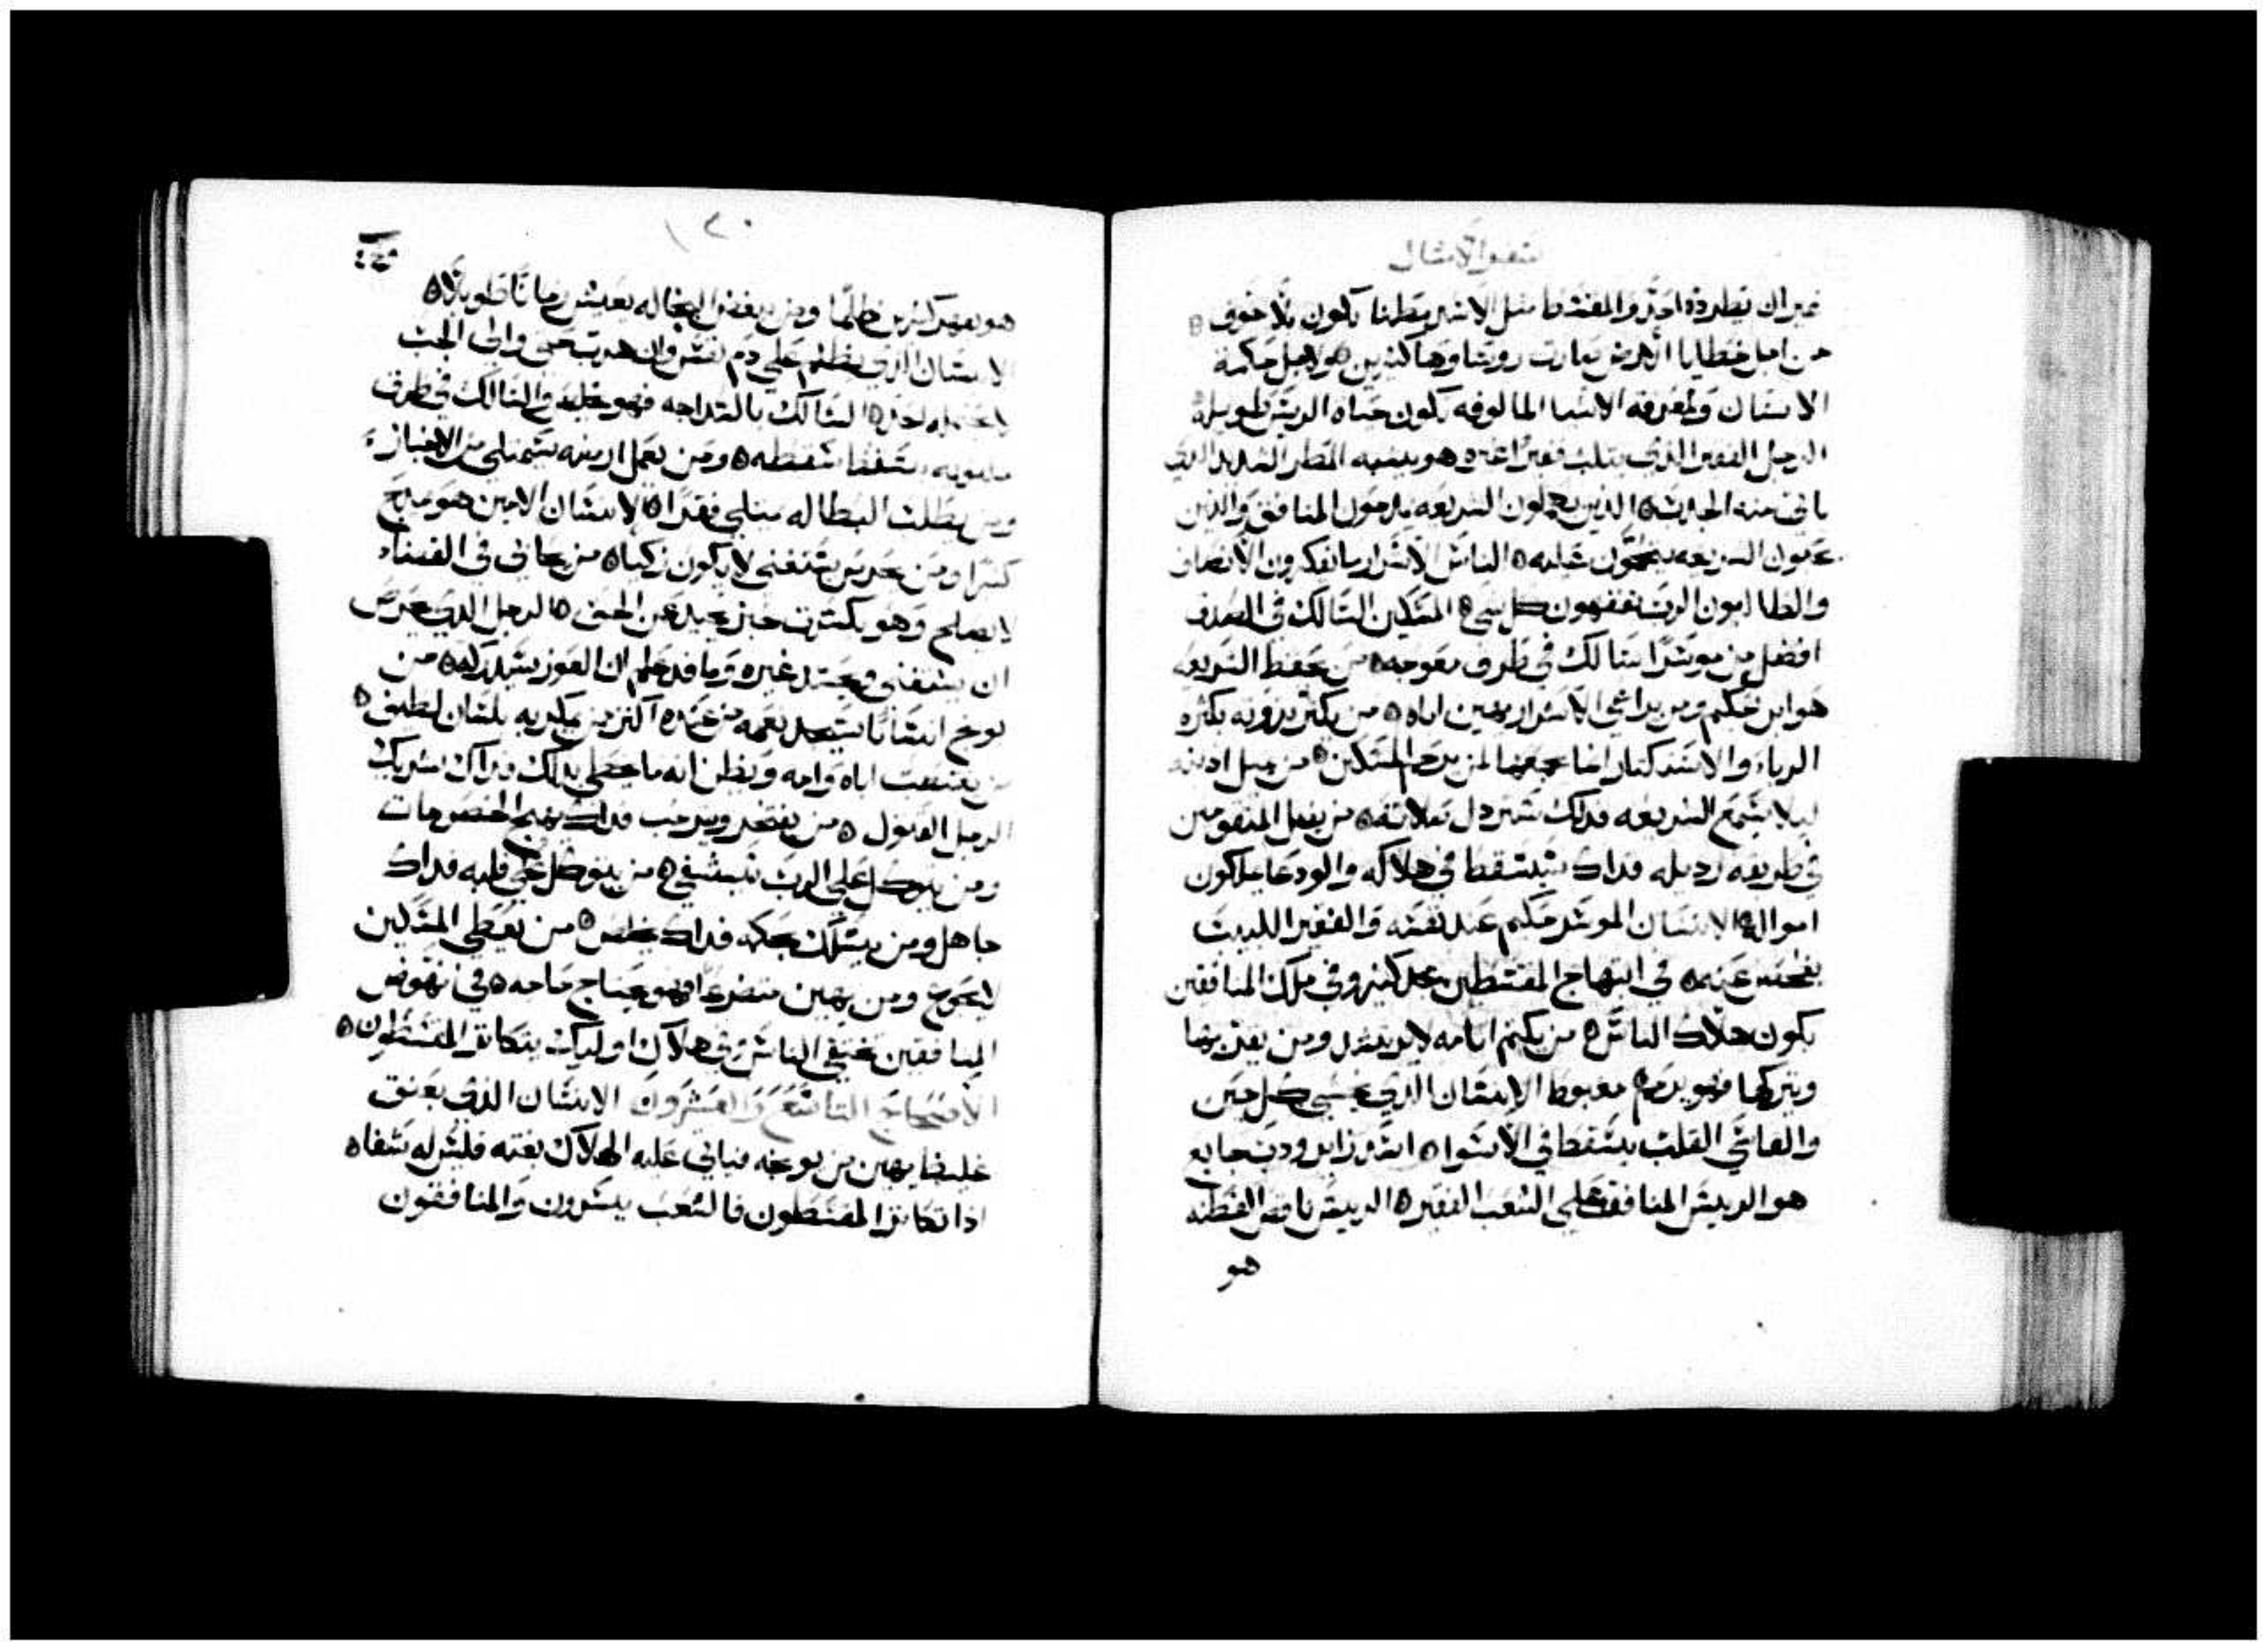 سفر الامثال
غير ان يطرده احد والمقسط مثل الاسد مطمنا يكون بلا خوف
من اجل خطايا الارض صارت روساوها كثيرين ولاجل حكمة
الانسان ولمعرفه الاشيا المالوفه يكون حياه الريس طويله
الرجل الفقير الذي يثلب فقيرا غيره هو يشبه المطر الشديد الذي
ياتي منه الجدب الذين يهملون الشريعه يدمون المنافق والذين
يحبون الشريعه يتحمون عليه الناس الاشرار ما يفكرون الانصاف
والطالبون الرب يفقهون كل شي المسكين السالك في الصدق
افضل من موسرا سالك في طرق معوجه من يحفظ الشريعه
هو ابن حكيم ومن يراعي الاشرار يهين اباه من يكثر ثروته بكثره
الرباء والاستكثار انما يجمعها لمن يرحم المساكين من يميل اذنيه
ليلا يسمع الشريعه فذلك تسترذل صلاته من يضل المقومين
في طريقه رديله فذاك سيسقط في هلاكه والودعا يملكون
امواله الانسان الموسر حكيم عند نفسه والفقير اللبيب
يفحص عنه في ابتهاج المقسطين مجد كثير وفي ملك المنافقين
يكون هلاك الناس من يكتم اثامه لا يرشد ومن يقر بها
ويتركها فهو يرحم مغبوط الانسان الذي يخشي كل حين
والقاسي القلب يسقط في الاسوا اسد زاير ودب جايع
هو الريس المنافق علي الشعب الفقير الريس ناقص الفطنه
هو
١٢٠
هو يقهر كثيرين ظلما ومن يبغض البخاله يعيش زمانا طويلا
الانسان الذي يظلم علي دم نفس وان هرب حتي والي الجب
لا يحتمله احد السالك بالسداجه فهو يخلص والسالك في طرق
ملتويه يسقط سقطه ومن يعمل ارضه يمتلي من الاخباز
ومن يطلب البطاله يمتلي فقرا الانسان الامين هو ممدوح
كثيرا ومن يحرس يستغني لا يكون زكيا من يحابي في القضاء
لا يصلح وهو بكسرت خبز يحيد عن الحق الرجل الذي يحرص
ان يستغني ويحسد غيره وما قد علم ان العوز سيدركه من
يوبخ انسانا سيجد نعمه عنده اكثر من مكر به بلسان لطيف
من يغتصب اباه وامه ويظن انه ما يخطي بذلك فذاك شريك
الرجل القتول من يفتخر ويترحب فذاك يهيج الخصومات
ومن يتوكل علي الرب سيشفي من يتوكل علي قلبه فذاك
جاهل ومن يسلك بحكمه فذاك يخلص من يعطي المساكين
لا يحوج ومن يهين متضرعا فهو يحتاج حاجه في نهوض
المنافقين تختفي الناس وفي هلاك اوليك يتكاثر المقسطون
الاصحاح التاسع والعشرون الانسان الذي بعنق
غليظا يهين من يوبخه فياتي عليه الهلاك بغته فليس له شفاه
اذا تكاثر المقسطون فالشعب يسرون والمنافقون